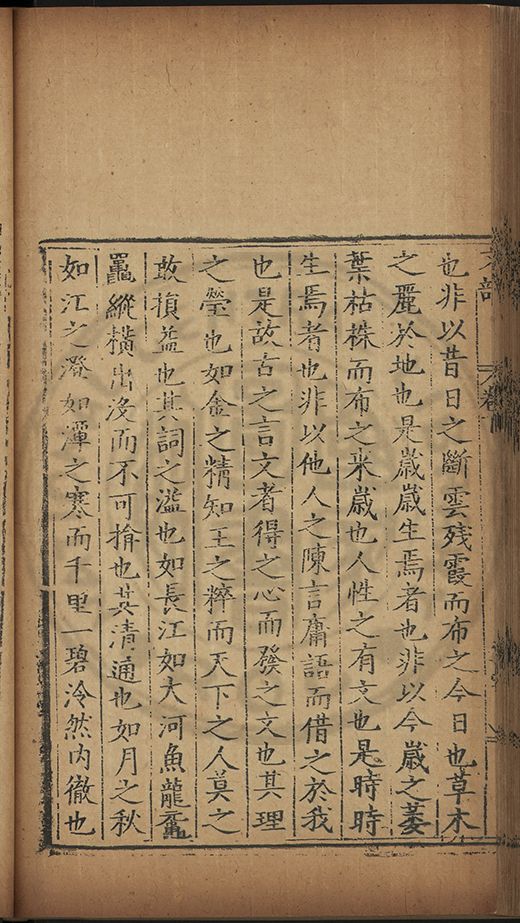 也非以昔日之斷雲殘霞而布之今日也草木
之麗於地也是歲歲生焉者也非以今歲之萎
葉枯株而布之来歲也人性之有文也是時時
生焉者也非以他人之陳言庸語而借之於我
也是故古之言文者得之心而發之文也其理
之瑩也如金之精如玉之粹而天下之人莫之
敢損益也其詞之溢也如長江如大河魚龍黿
鼉縱橫出沒而不可揜也其清通也如月之秋
如江之澄如潭之寒而千里一碧泠然内徹也